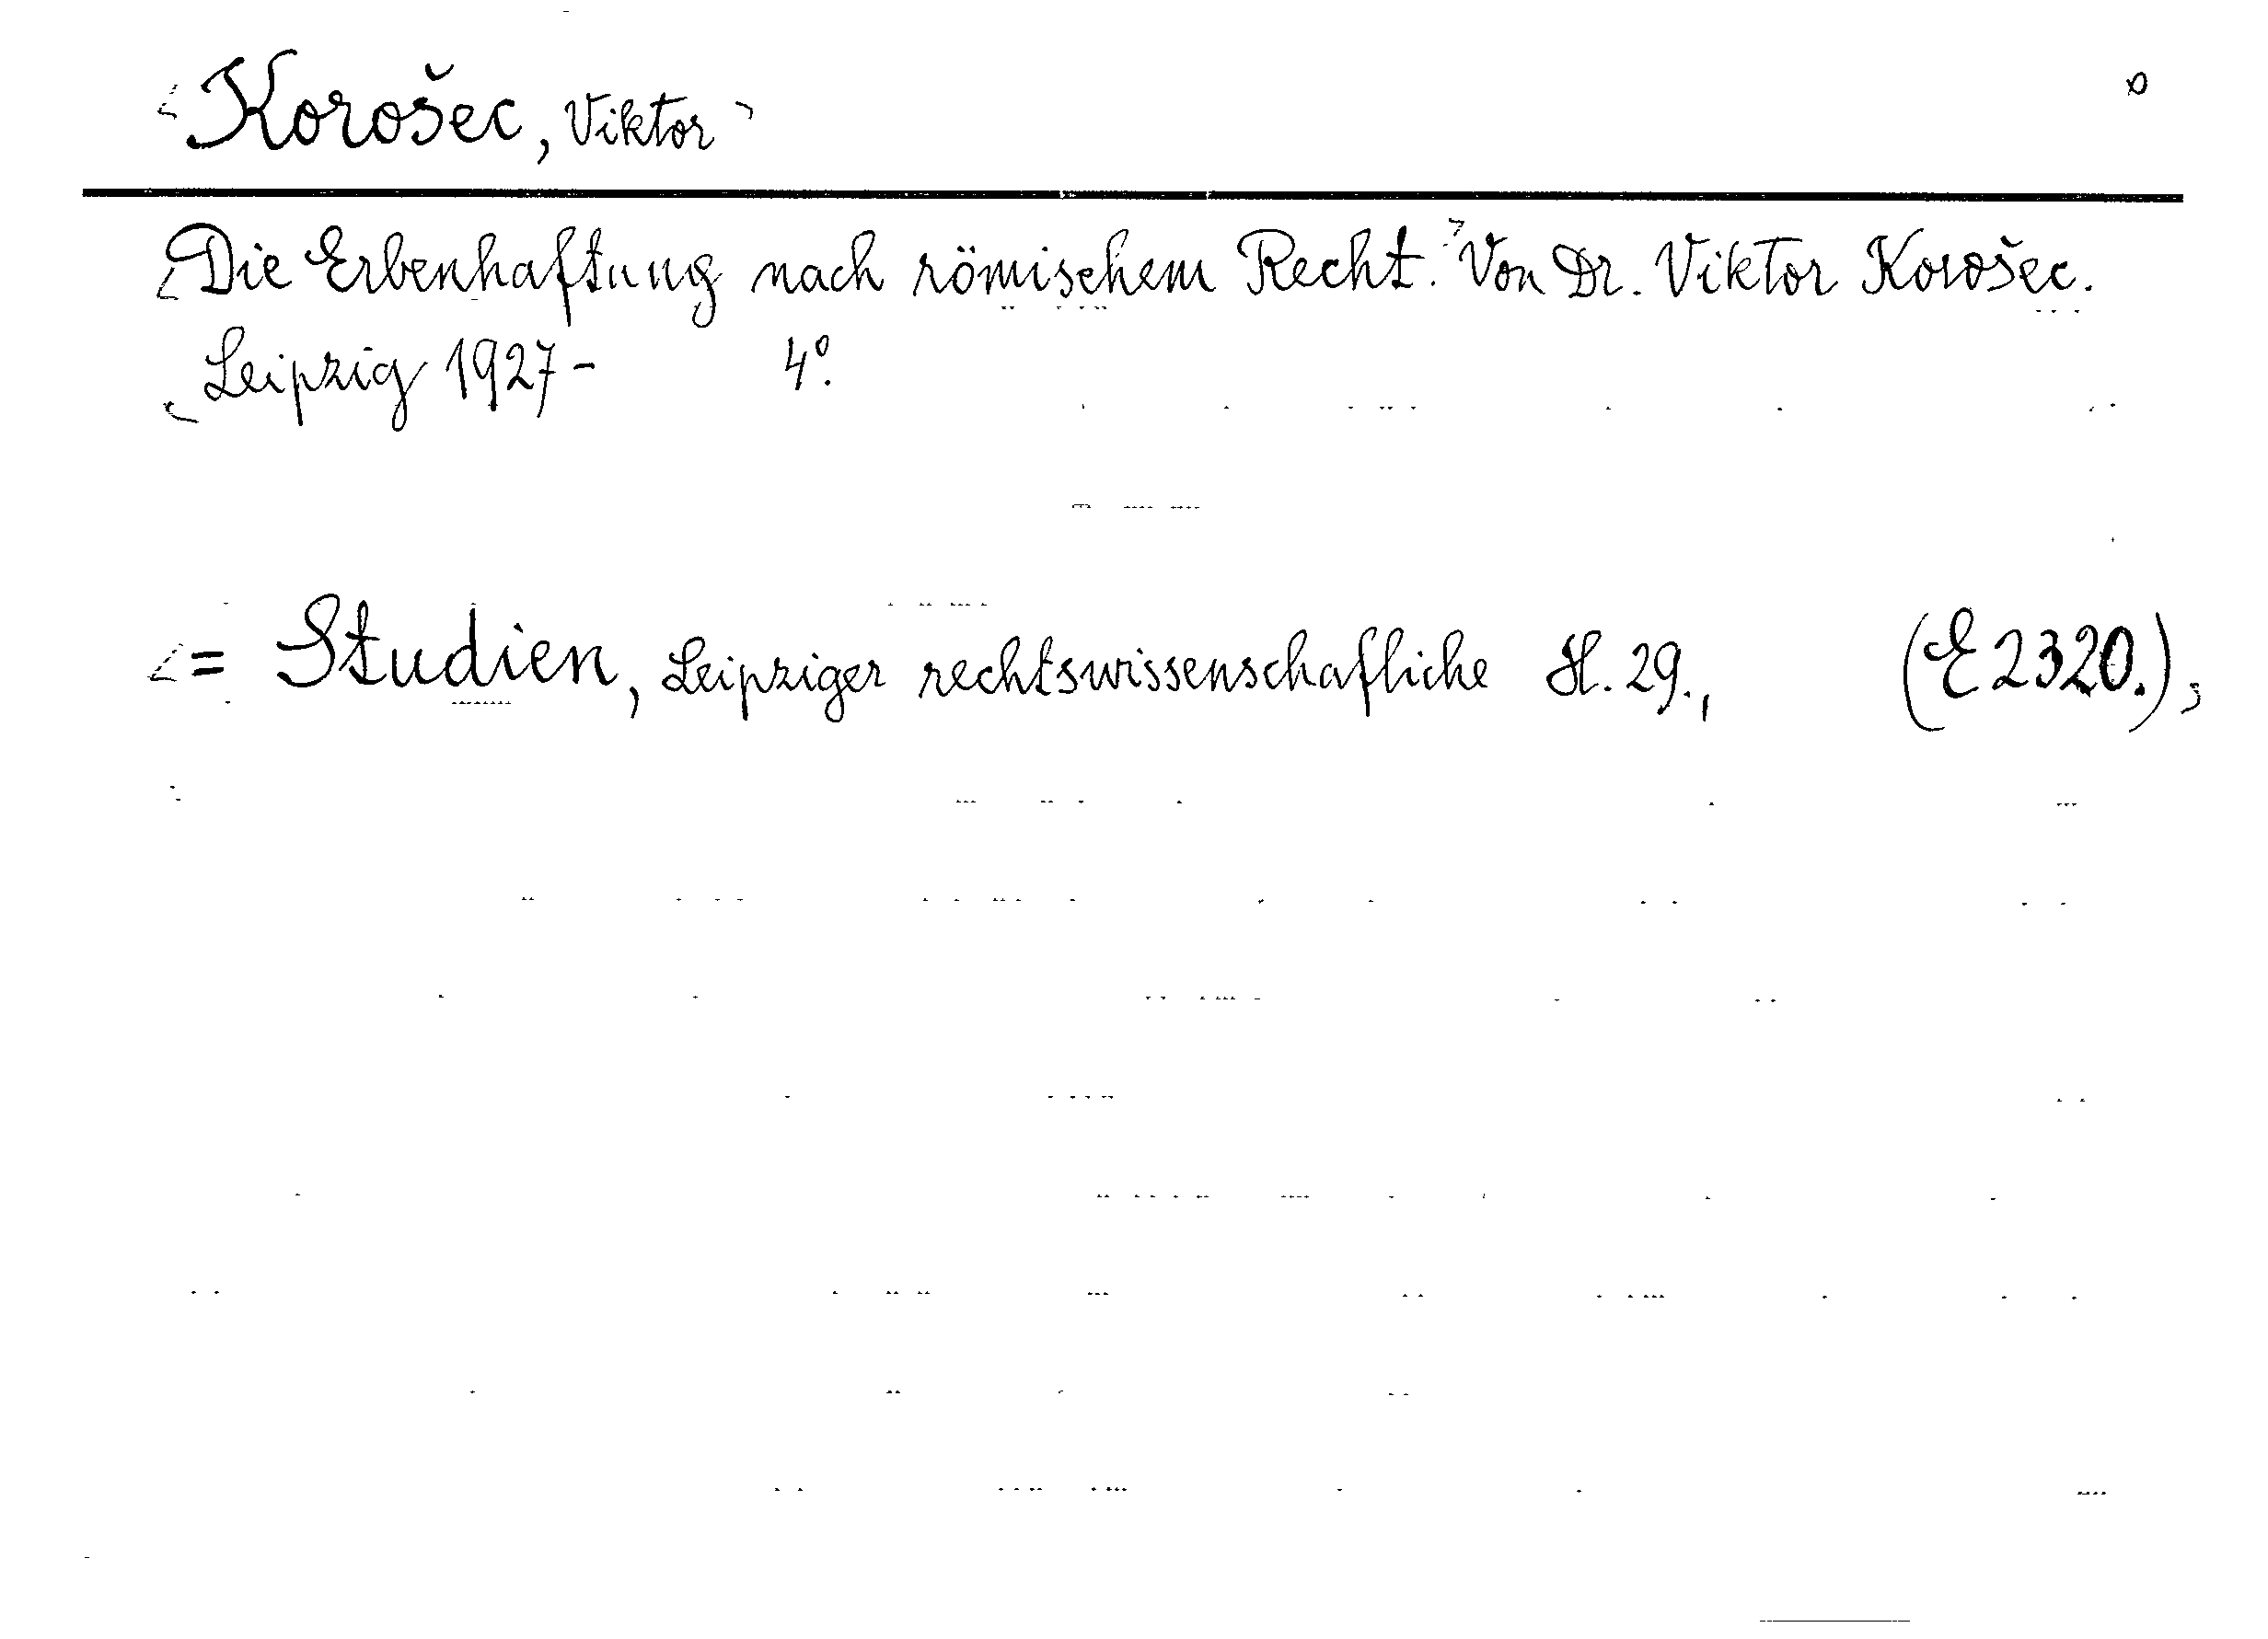 Korošec, Viktor
Die Erbenhaftung nach römischem Recht. Von Dr. Viktor Korošec.
Leipzig 1927- 4°.
= Studien, Leipziger rechtswissenschafliche H. 29., (E 2320.)